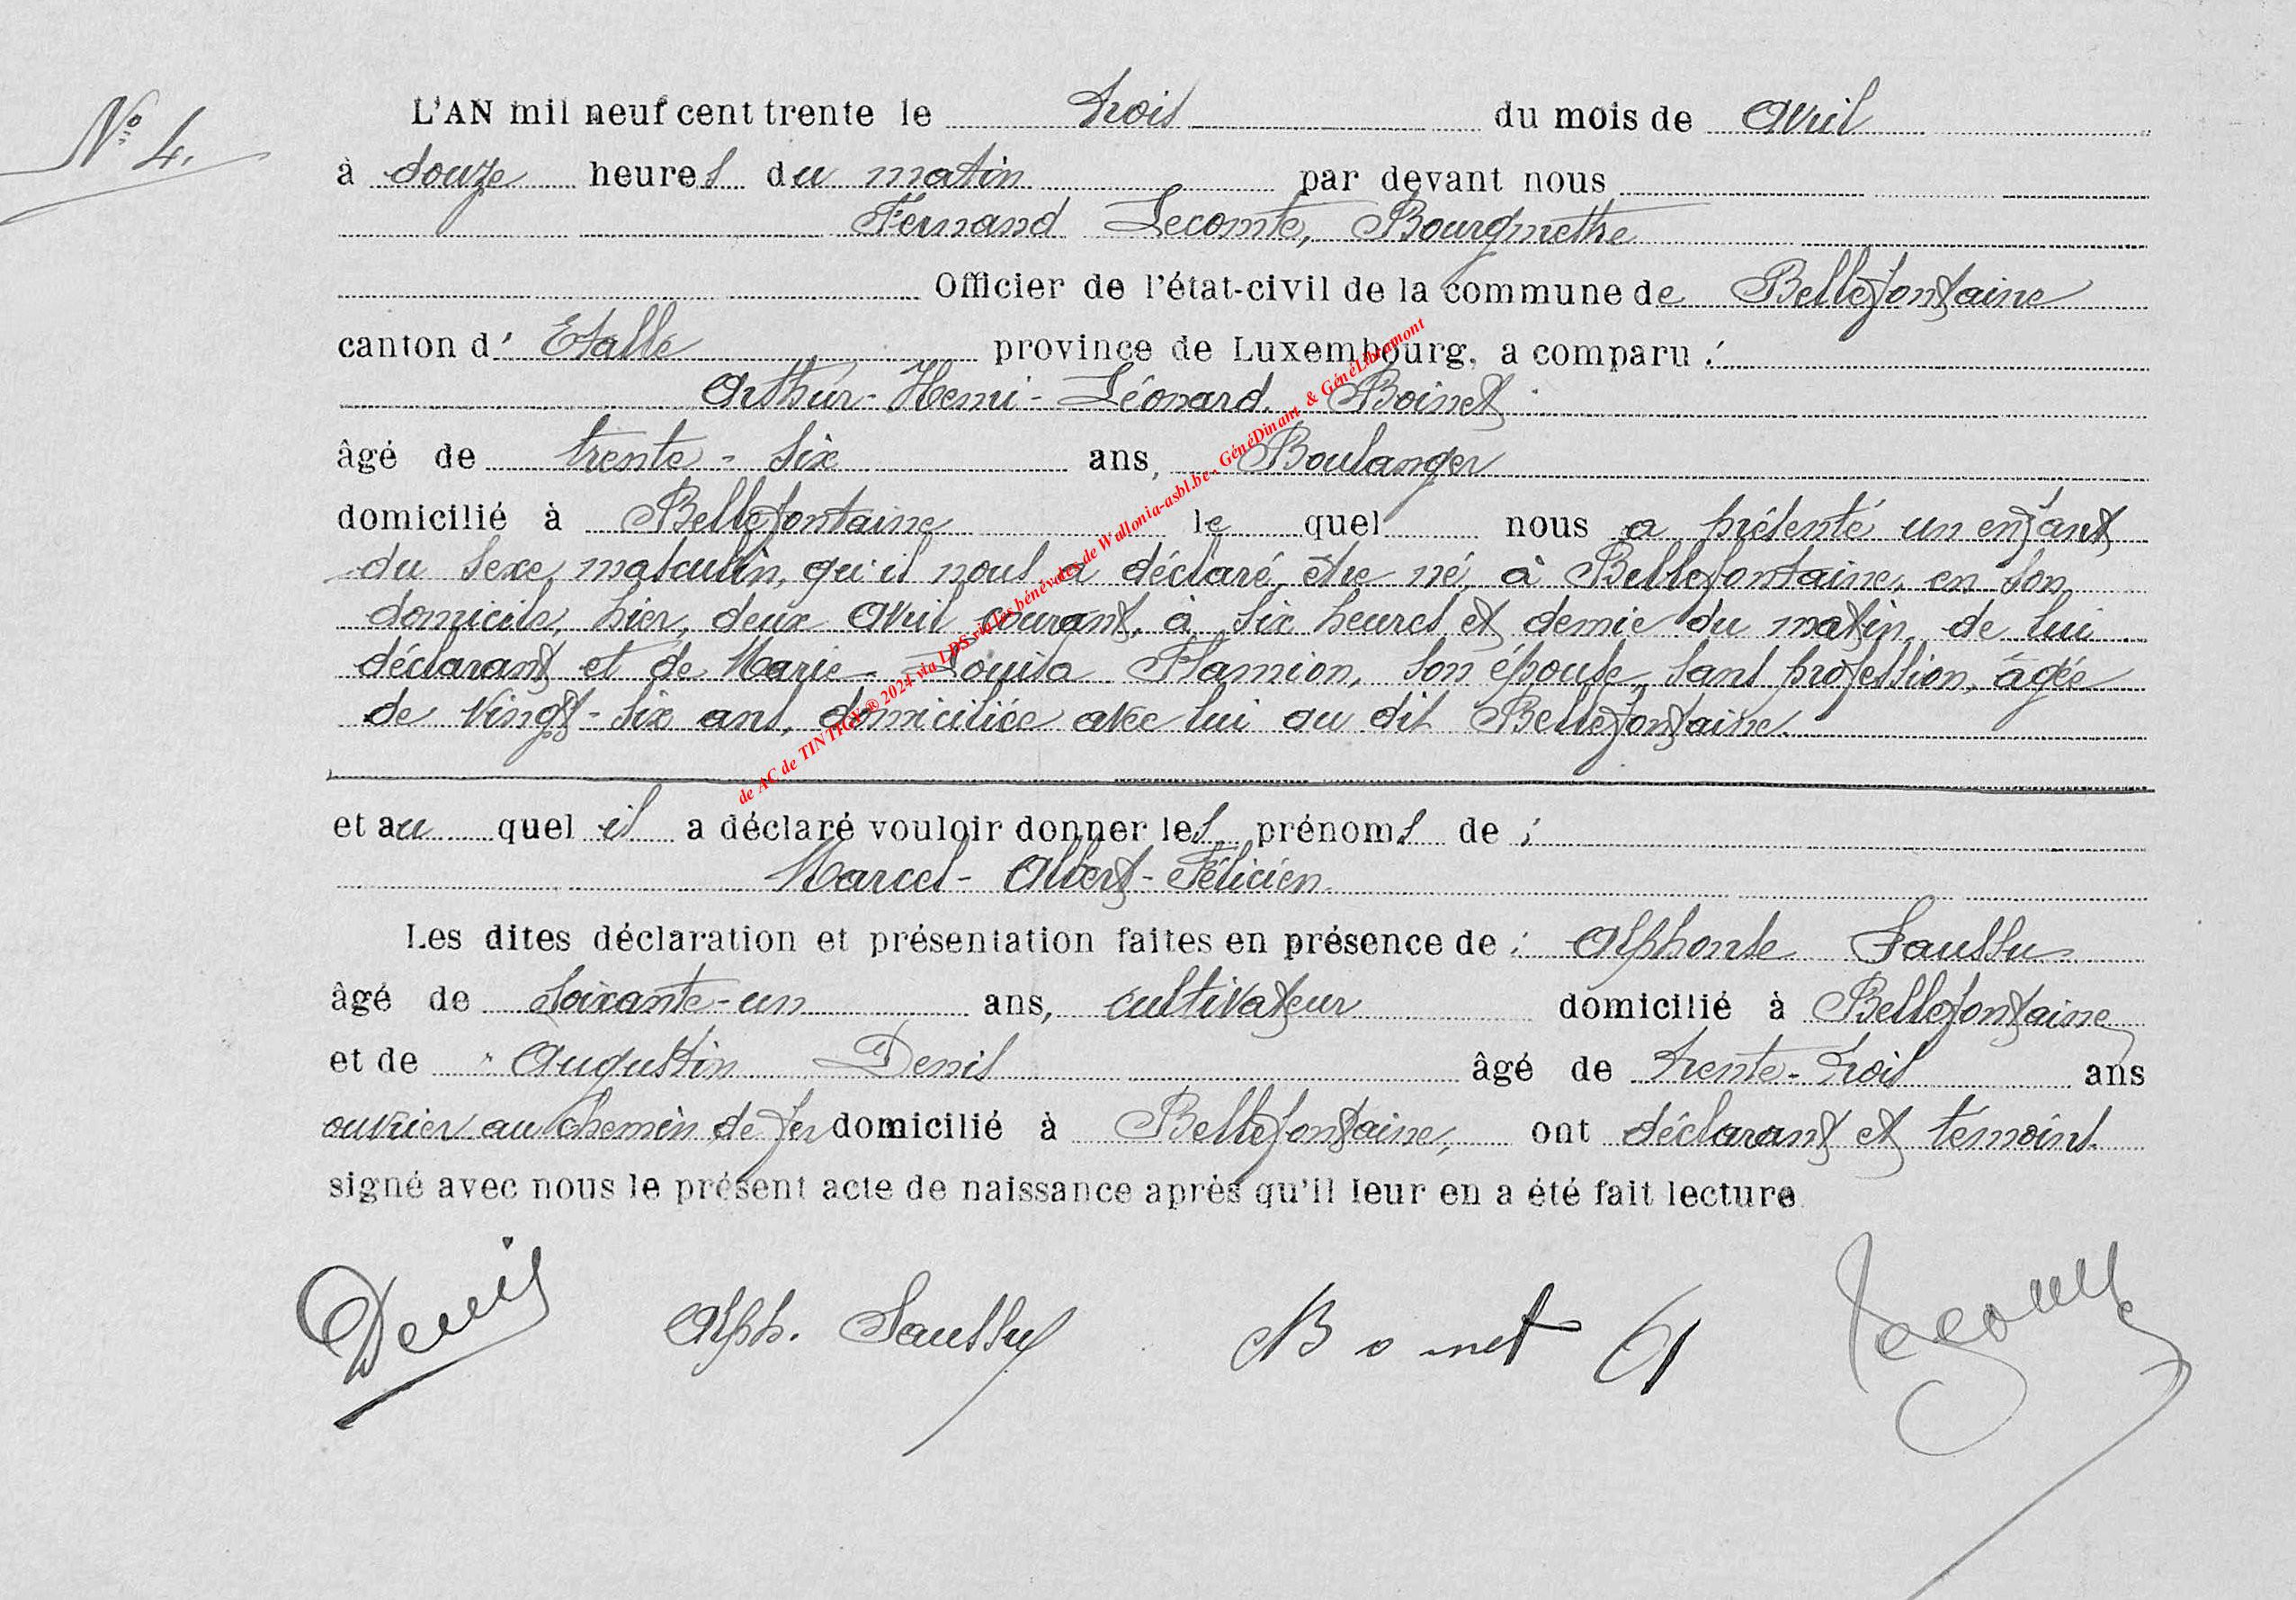 N° 4.
L'AN mil neuf cent trente le trois du mois de Avril
à douze heures du matin par devant nous
Fernand Lecomte, Bourgmettre
Officier de l'état-civil de la commune de Bellefontaine
canton d' Etalle province de Luxembourg, a comparu :
Arthur-Henri-Léonard Boinet
âgé de trente-six ans, Boulanger
domicilié à Bellefontaine le quel nous a présenté un enfant
du sexe masculin, qu'il nous a déclaré être né à Bellefontaine, en son
domicile, hier, deux Avril courant, à six heures et demie du matin, de lui
déclarant et de Marie-Louisa Flamion, son épouse, sans profession, âgée
de vingt-six ans, domiciliée avec lui au dit Bellefontaine.
et au quel il a déclaré vouloir donner les prénoms de :
Marcel-Albert-Félicien
Les dites déclaration et présentation faites en présence de : Alphonse Saussu
âgé de soixante-un ans, cultivateur domicilié à Bellefontaine
et de Augustin Denis âgé de trente-trois ans
ouvrier au chemin de fer domicilié à Bellefontaine, ont déclarant et témoins
signé avec nous le présent acte de naissance après qu'il leur en a été fait lecture
Denis Alph. Saussu Boinet A Lecomte
de AC de TINTIGNY ® 2024 via LDS via les bénévoles de Wallonia-asbl.be - GénéDinant & GénéLibramont